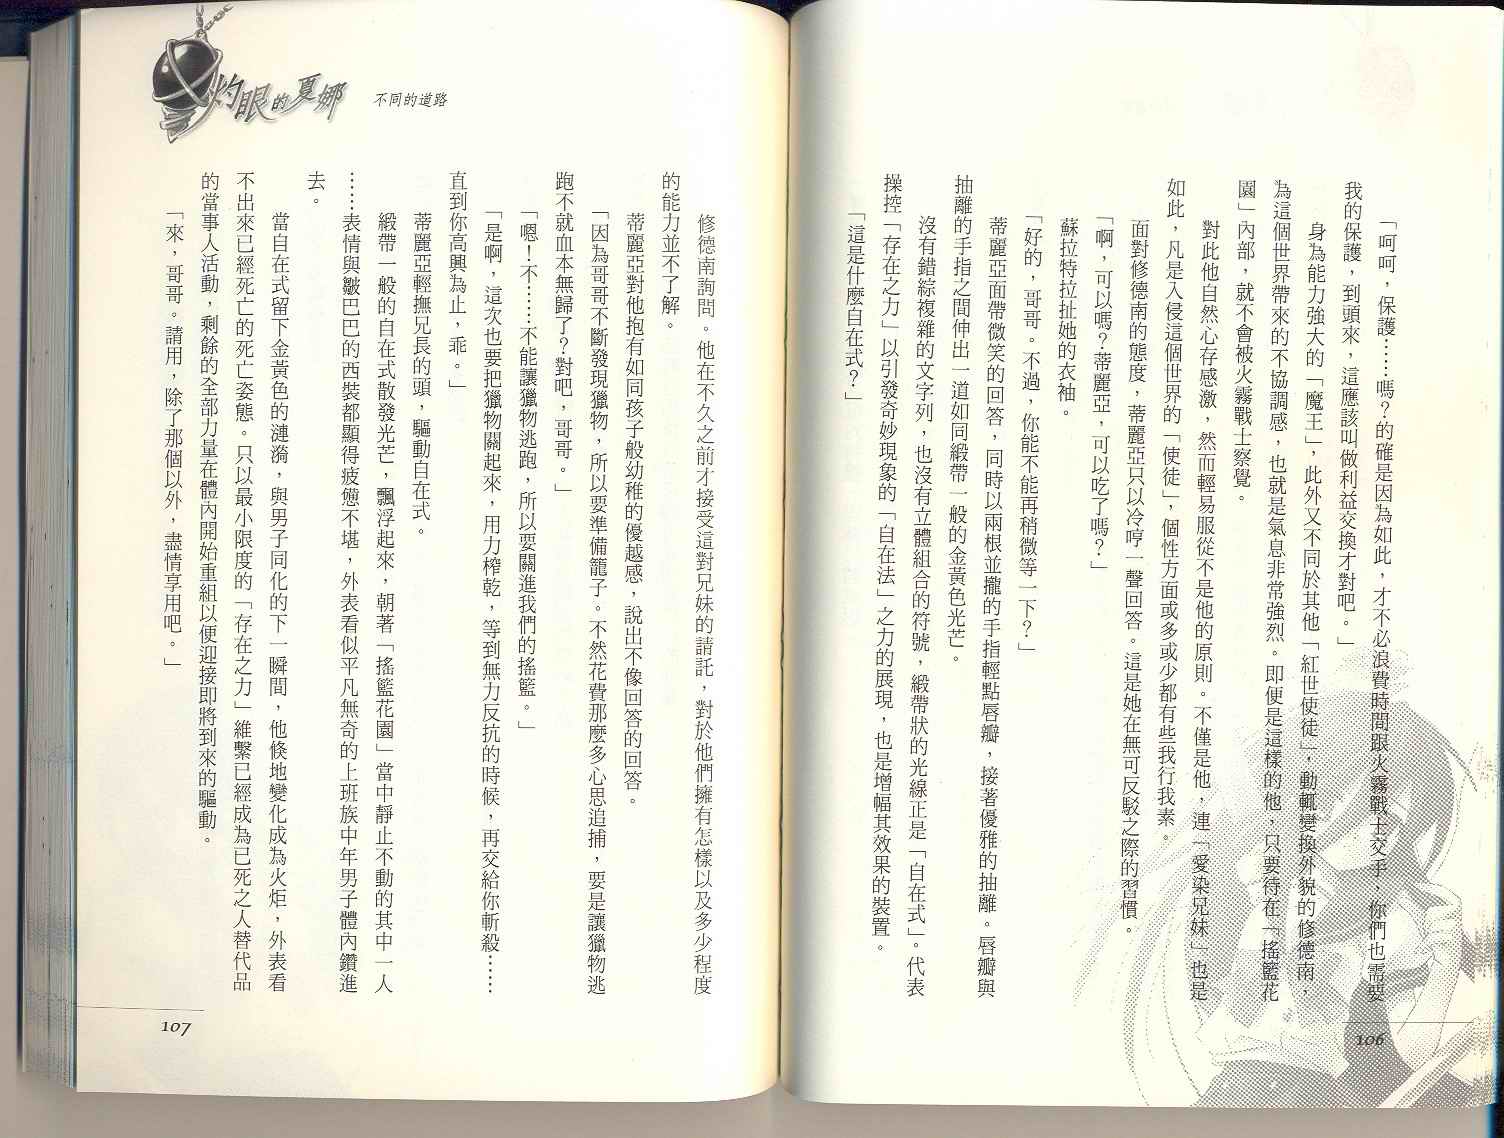 「呵呵，保護……嗎？的確是因為如此，才不必浪費時間跟火霧戰士交手，你們也需要
我的保護，到頭來，這應該叫做利益交換才對吧。」
身為能力強大的「魔王」，此外又不同於其他「紅世使徒」，動輒變換外貌的修德南，
為這個世界帶來的不協調感，也就是氣息非常強烈。即便是這樣的他，只要待在「搖籃花
園」內部，就不會被火霧戰士察覺。
對此他自然心存感激，然而輕易服從不是他的原則。不僅是他，連「愛染兄妹」也是
如此，凡是入侵這個世界的「使徒」，個性方面或多或少都有些我行我素。
面對修德南的態度，蒂麗亞只以冷哼一聲回答。這是她在無可反駁之際的習慣。
「啊，可以嗎？蒂麗亞，可以吃了嗎？」
蘇拉特拉扯她的衣袖。
「好的，哥哥。不過，你能不能再稍微等一下？」
蒂麗亞面帶微笑的回答，同時以兩根並攏的手指輕點唇瓣，接著優雅的抽離。唇瓣與
抽離的手指之間伸出一道如同緞帶一般的金黃色光芒。
沒有錯綜複雜的文字列，也沒有立體組合的符號，緞帶狀的光線正是「自在式」。代表
操控「存在之力」以引發奇妙現象的「自在法」之力的展現，也是增幅其效果的裝置。
「這是什麼自在式？」
106
灼眼的夏娜
不同的道路
修德南詢問。他在不久之前才接受這對兄妹的請託，對於他們擁有怎樣以及多少程度
的能力並不了解。
蒂麗亞對他抱有如同孩子般幼稚的優越感，說出不像回答的回答。
「因為哥哥不斷發現獵物，所以要準備籠子。不然花費那麼多心思追捕，要是讓獵物逃
跑不就血本無歸了？對吧，哥哥。」
「嗯！不……不能讓獵物逃跑，所以要關進我們的搖籃。」
「是啊，這次也要把獵物關起來，用力榨乾，等到無力反抗的時候，再交給你斬殺……
直到你高興為止，乖。」
蒂麗亞輕撫兄長的頭，驅動自在式。
緞帶一般的自在式散發光芒，飄浮起來，朝著「搖籃花園」當中靜止不動的其中一人
……表情與皺巴巴的西裝都顯得疲憊不堪，外表看似平凡無奇的上班族中年男子體內鑽進
去。
當自在式留下金黃色的漣漪，與男子同化的下一瞬間，他倏地變化成為火炬，外表看
不出來已經死亡的死亡姿態。只以最小限度的「存在之力」維繫已經成為已死之人替代品
的當事人活動，剩餘的全部力量在體內開始重組以便迎接即將到來的驅動。
「來，哥哥。請用，除了那個以外，盡情享用吧。」
107